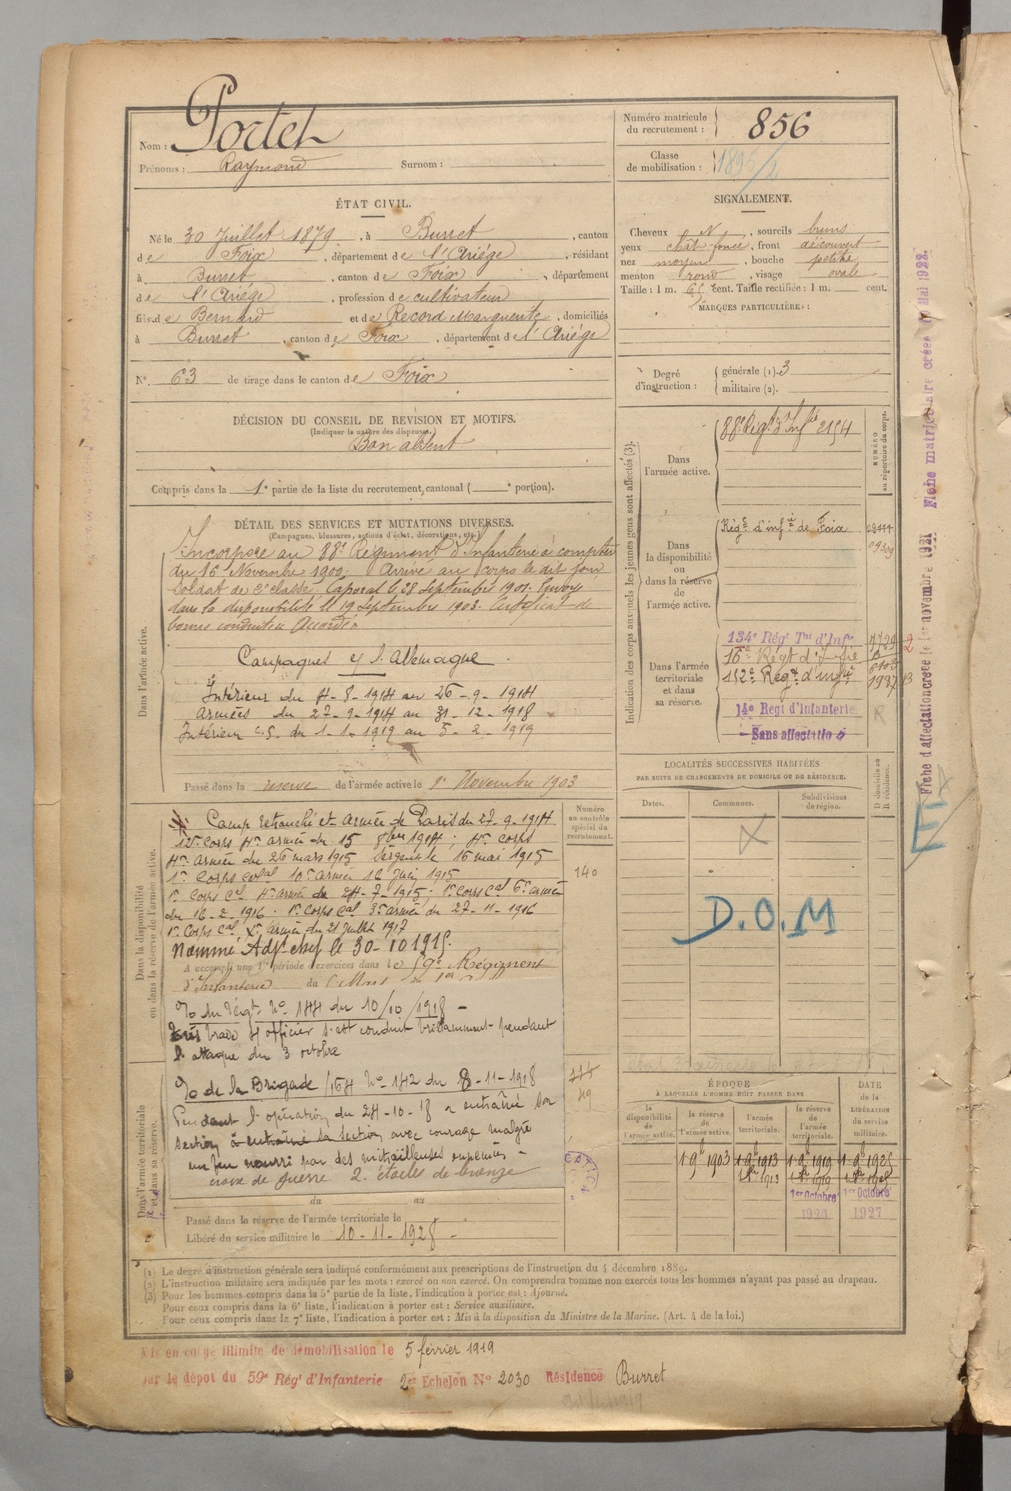 Nom : Portet
Prénoms : Raymond Surnom :
ÉTAT CIVIL.
Né le 30 Juillet 1879, à Burret, canton
de Foix, département de l'Ariége, résidant
à Burret, canton de Foix, département
de l'Ariége, profession de cultivateur
fils de Bernard et de Record Marguerite, domiciliés
à Burret, canton de Foix, département de l'Ariége
N° 63 de tirage dans le canton de Foix
DÉCISION DU CONSEIL DE REVISION ET MOTIFS.
(Indiquer la nature des dispenses.)
Bon absent
Compris dans la 1e partie de la liste du recrutement cantonal ( e portion).
DÉTAIL DES SERVICES ET MUTATIONS DIVERSES.
(Campagnes, blessures, actions d'éclat, décorations, etc.)
Dans l'armée active.
Incorporé au 88e Régiment d'Infanterie à compter
du 16 Novembre 1900. Arrivé au corps le dit jour
soldat de 2e classe. Caporal le 28 Septembre 1901. Envoyé
dans la disponibilité le 19 Septembre 1903. Certificat de
bonne conduite Accordé
Campagnes c/ l'Allemagne.
Intérieur du 4-8-1914 au 26-9-1914
Armées du 27-9-1914 au 31-12-1918
Intérieur C.S. du 1-1-1919 au 5-2-1919
Passé dans la reserve de l'armée active le 1er Novembre 1903
Dans la disponibilité
ou dans la réserve de l'armée active.
Numéro
au contrôle
spécial du
recrutement.
140
Camp retranché et Armée de Paris du 27-9-1914
4e armée du 15 8bre 1914; 4e Corps
4e armée du 26 mars 1915 Sergent le 16 mai 1915
1er Corps Colal 10e armée 16 Juin 1915
1er Corps Cal 4e armée du 24-7-1915. 1er Corps Cal 6e armée
du 16-2-1916. 1er Corps Cal 3e armée du 27-11-1916
1er Corps Cal, Xe Armée du 21 Juillet 1917
Nommé Adjt chef le 30-10 1915.
A accompli une 1re période d'exercices dans le 59e Régiment
d'Infanterie du
O du Régt No 144 du 10/10/1918 -
Très brave s/ officier s'est conduit brillamment pendant
l'attaque du 3 octobre
Dans l'armée territoriale
et dans sa réserve.
O de la Brigade /164 No 142 du 8-11-1918
Pendant l'opération du 24-10-18 a entraîné son
section à entraîné la section avec courage malgré
un feu nourri par des mitrailleuses
croix de guerre 2 étoiles de bronze
du au
Passé dans la réserve de l'armée territoriale le
Libéré du service militaire le 10-11-1928 -
Numéro matricule
du recrutement : 856
Classe
de mobilisation :
SIGNALEMENT.
Cheveux N, sourcils bruns
yeux chat. foncé, front découvert
nez moyen, bouche petite
menton rond, visage ovale
Taille : 1 m. 65 cent. Taille rectifiée : 1 m. cent.
MARQUES PARTICULIÈRES :
Degré
d'instruction : générale (1). 3
militaire (2).
Indication des corps auxquels les jeunes gens sont affectés (3).
NUMÉRO
au répertoire du corps.
Dans
l'armée active.
88e Régt d'Infie 2154
Dans
la disponibilité
ou
dans la réserve
de
l'armée active.
Régt d'infie de Foix
Dans l'armée
territoriale
et dans
sa réserve.
134e Régt Tal d'Infie
16e Régt d'Infie
152e Régt d'infie
14e Regt d'Infanterie
Sans affectation
LOCALITÉS SUCCESSIVES HABITÉES
PAR SUITE DE CHANGEMENTS DE DOMICILE OU DE RÉSIDENCE.
Dates. Communes. Subdivisions
de région. D. domicile ou
R. résidence.
D.O.M
ÉPOQUE
À LAQUELLE L'HOMME DOIT PASSER DANS
la
disponibilité
de l'armée active. la réserve
de
l'armée active. l'armée
territoriale. la réserve
de
l'armée
territoriale. DATE
de la
LIBÉRATION
du service
militaire.
1-9b 1903 1-9b 1913 1-9b 1919 1-9b 1925
1er Octobre 1er Octobre
1920 1927
(1) Le degré d'instruction générale sera indiqué conformément aux prescriptions de l'instruction du 4 décembre 1889.
(2) L'instruction militaire sera indiquée par les mots : exercé ou non exercé. On comprendra comme non exercés tous les hommes n'ayant pas passé au drapeau.
(3) Pour les hommes compris dans la 5e partie de la liste, l'indication à porter est : Ajourné.
Pour ceux compris dans la 6e liste, l'indication à porter est : Service auxiliaire.
Pour ceux compris dans la 7e liste, l'indication à porter est : Mis à la disposition du Ministre de la Marine. (Art. 4 de la loi.)
Mis en congé illimité de démobilisation le 5 février 1919
par le dépot du 59e Régt d'Infanterie 2er Echelon No 2030 Résidence Burret
Fiche d'affectation créée le 1er novembre 1921 Fiche matriculaire créée Mai 1922.